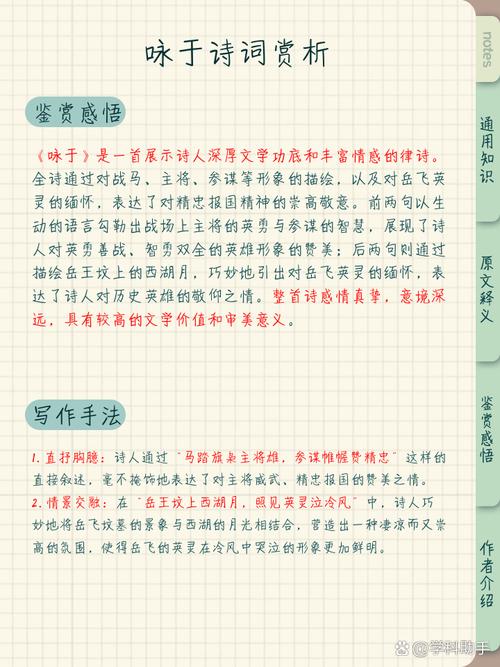 咏于诗词赏析
notes
通用知识
原文释义
鉴赏感悟
作者介绍
鉴赏感悟
《咏于》是一首展示诗人深厚文学功底和丰富情感的律诗。
全诗通过对战马、主将、参谋等形象的描绘，以及对岳飞英
灵的缅怀，表达了对精忠报国精神的崇高敬意。前两句以生
动的语言勾勒出战场上主将的英勇与参谋的智慧，展现了诗
人对英勇善战、智勇双全的英雄形象的赞美；后两句则通过
描绘岳王坟上的西湖月，巧妙地引出对岳飞英灵的缅怀，表
达了诗人对历史英雄的敬仰之情。整首诗感情真挚，意境深
远，具有较高的文学价值和审美意义。
写作手法
1. 直抒胸臆：诗人通过“马踏旗枭主将雄，参谋帷幄赞精忠”这样的
直接叙述，毫不掩饰地表达了对主将威武、精忠报国的赞美之情。
2. 情景交融：在“岳王坟上西湖月，照见英灵泣冷风”中，诗人巧
妙地将岳飞坟墓的景象与西湖的月光相结合，营造出一种凄凉而又崇
高的氛围，使得岳飞的英灵在冷风中哭泣的形象更加鲜明。
百家号/学科助手